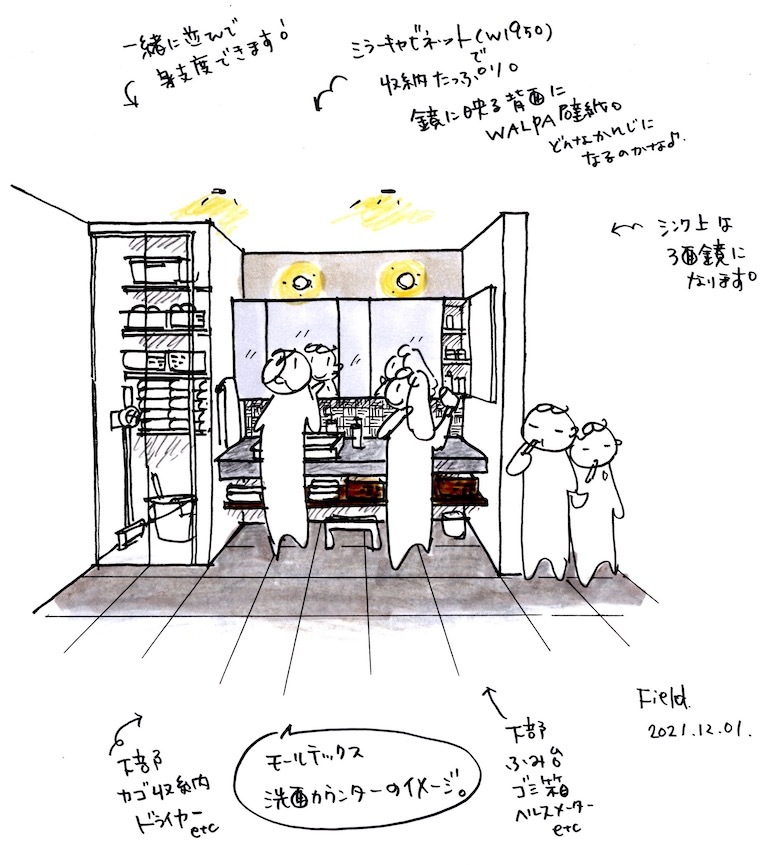 一緒に並んで
身支度できます！
ミラーキャビネット(W1950)
で
収納たっぷり。
鏡に映る背面に
WALPA壁紙。
どんなかんじに
なるのかな♪
シンク上は
3面鏡に
なります。
下部
カゴ収納
ドライヤー
etc
モールテックス
洗面カウンターのイメージ。
下部
ふみ台
ゴミ箱
ヘルスメーター
etc
Field.
2021.12.01.